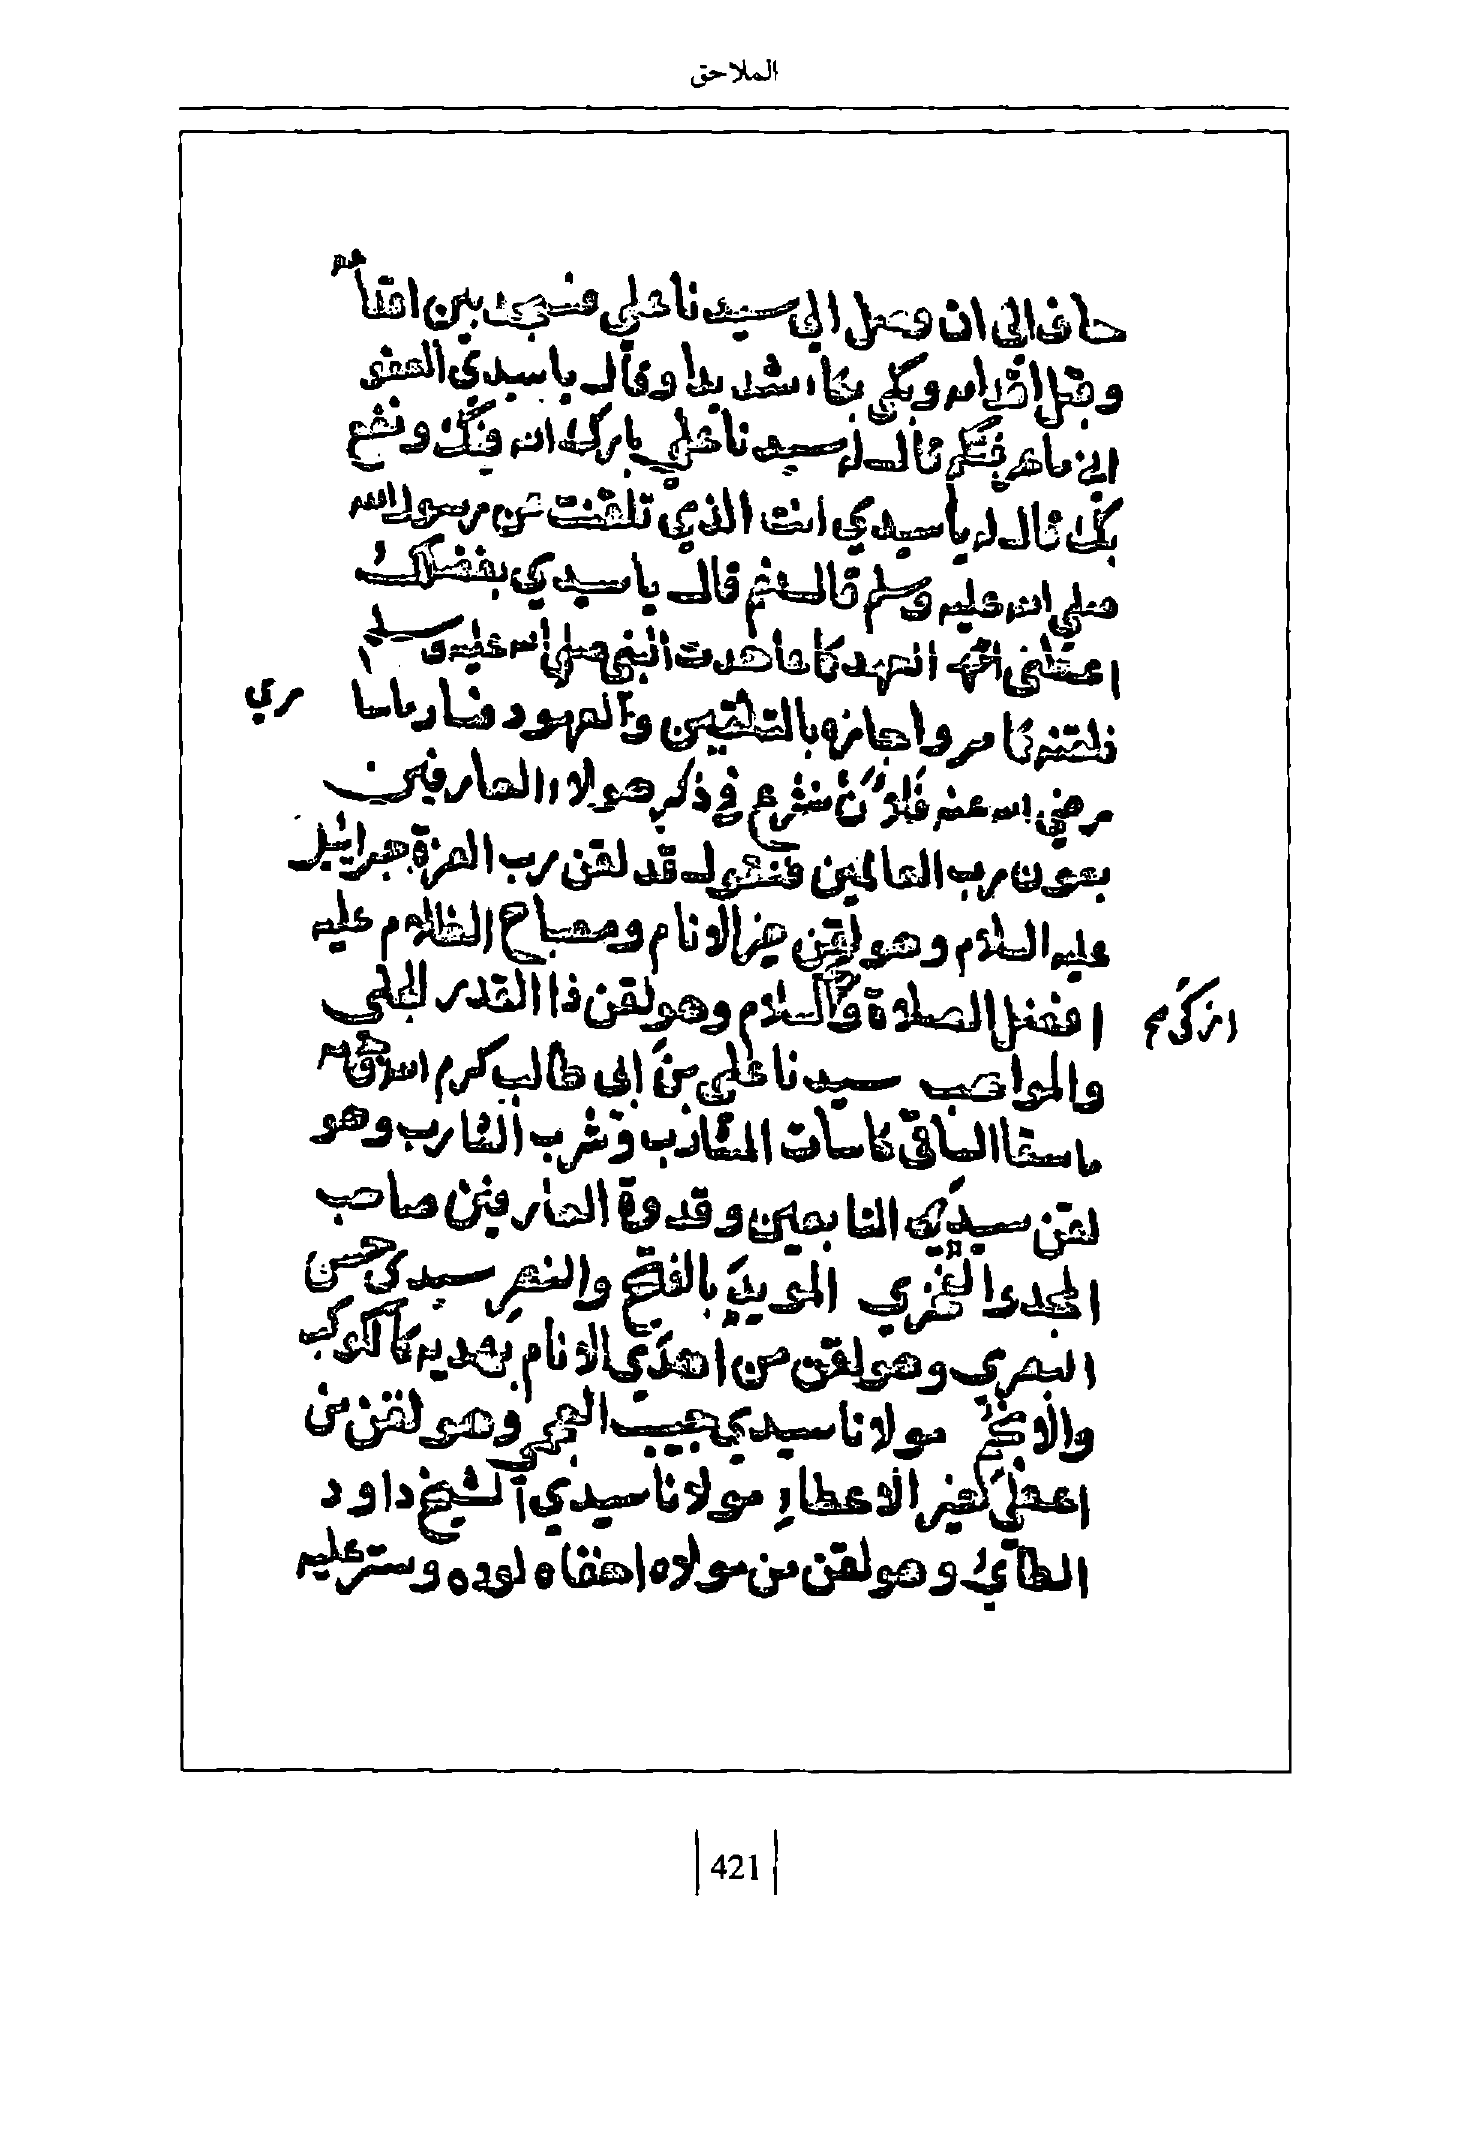 الملاحق
حافي الي ان وصل الي سيدنا علي فسجد بين اقدامهم
وقبل اقدامه وبكي بكاء شديدا وقال ياسيدي العفو
قال له سيدنا علي بارك الله فيك ونفع
بك قال له ياسيدي انت الذي تلقنت من رسول الله
صلي الله عليه وسلم قال نعم قال ياسيدي بفضلك
العهد كما عاهدت النبي صلي الله عليه وسلم
فلقنه كما مر واجازه بالتلقين والعهود فصار
ري
رضي الله عنه فلان نشرع في ذكر هولاء العارفين
بعون رب العالمين فنقول قد لقن رب العزة جبرائيل
عليه السلام وهو لقن خير الانام ومصباح الظلام عليه
افضل الصلاة والسلام وهو لقن ذا القدر الجلي
والمواهب سيدنا علي بن ابي طالب كرم الله وجهه
ماسقا الساقي كاسات المشارب وشرب الشارب وهو
لقن سيدي التابعين وقدوة العارفين صاحب
المجد والفخري المويد بالفتح والنصر سيدي حسن
البصري وهو لقن من اهدي الانام بهديه كالكوكب
والانجم مولانا سيدي حبيب العجمي وهو لقن من
مولانا سيدي الشيخ داود
الطائي وهو لقن من مولاه لوده وستر عليه
421